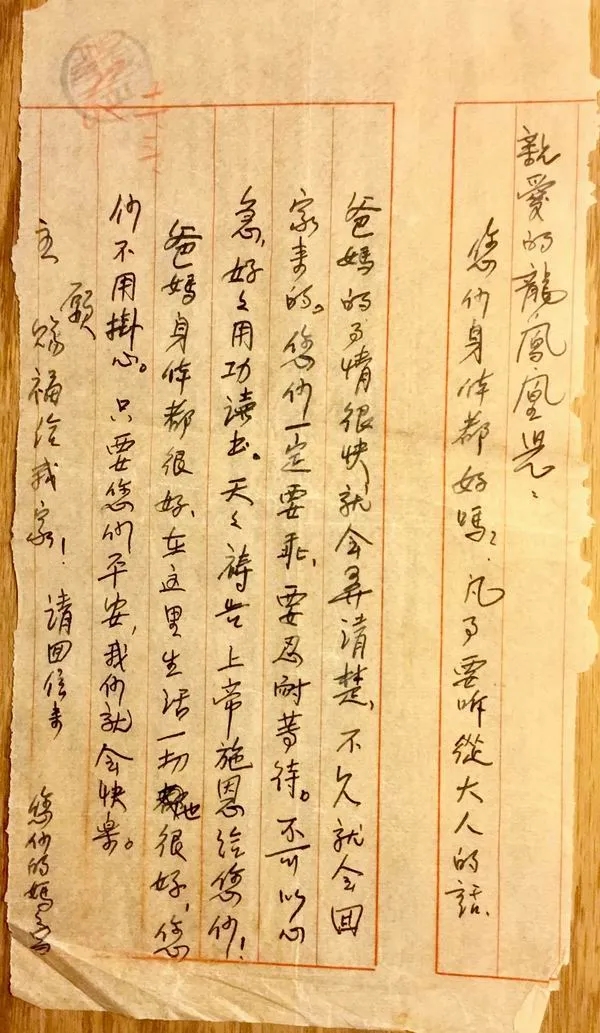 親愛的龍,鳳凰児:
您们身体都好嗎?凡事要听從大人的話.
爸媽的事情很快就会弄清楚,不久就会回
家来的。您们一定要乖,要忍耐等待。不可以心
急,好々用功讀书。天々祷告上帝施恩给您们!
爸媽身体都很好,在这里生活一切也很好,您
们不用掛心。只要您们平安,我们就会快樂。
願
主賜福给我家! 請回信来 您们的媽